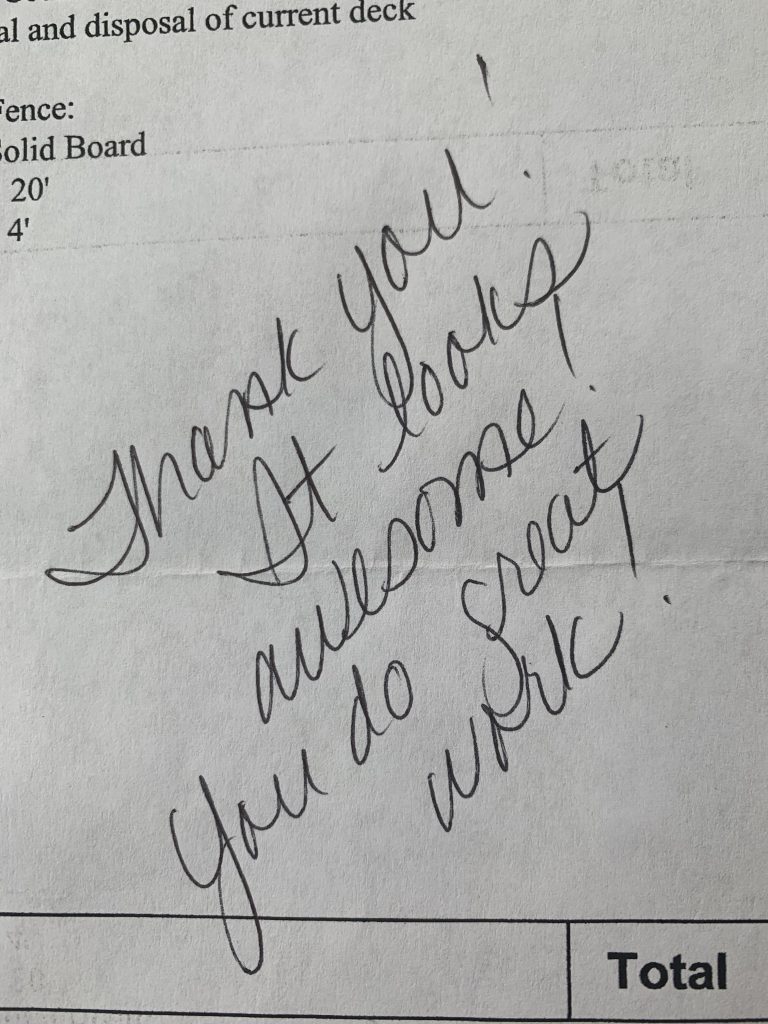 al and disposal of current deck
Fence:
Solid Board
20'
4'
Thank you!
It looks
awesome!
You do great
work!
Total